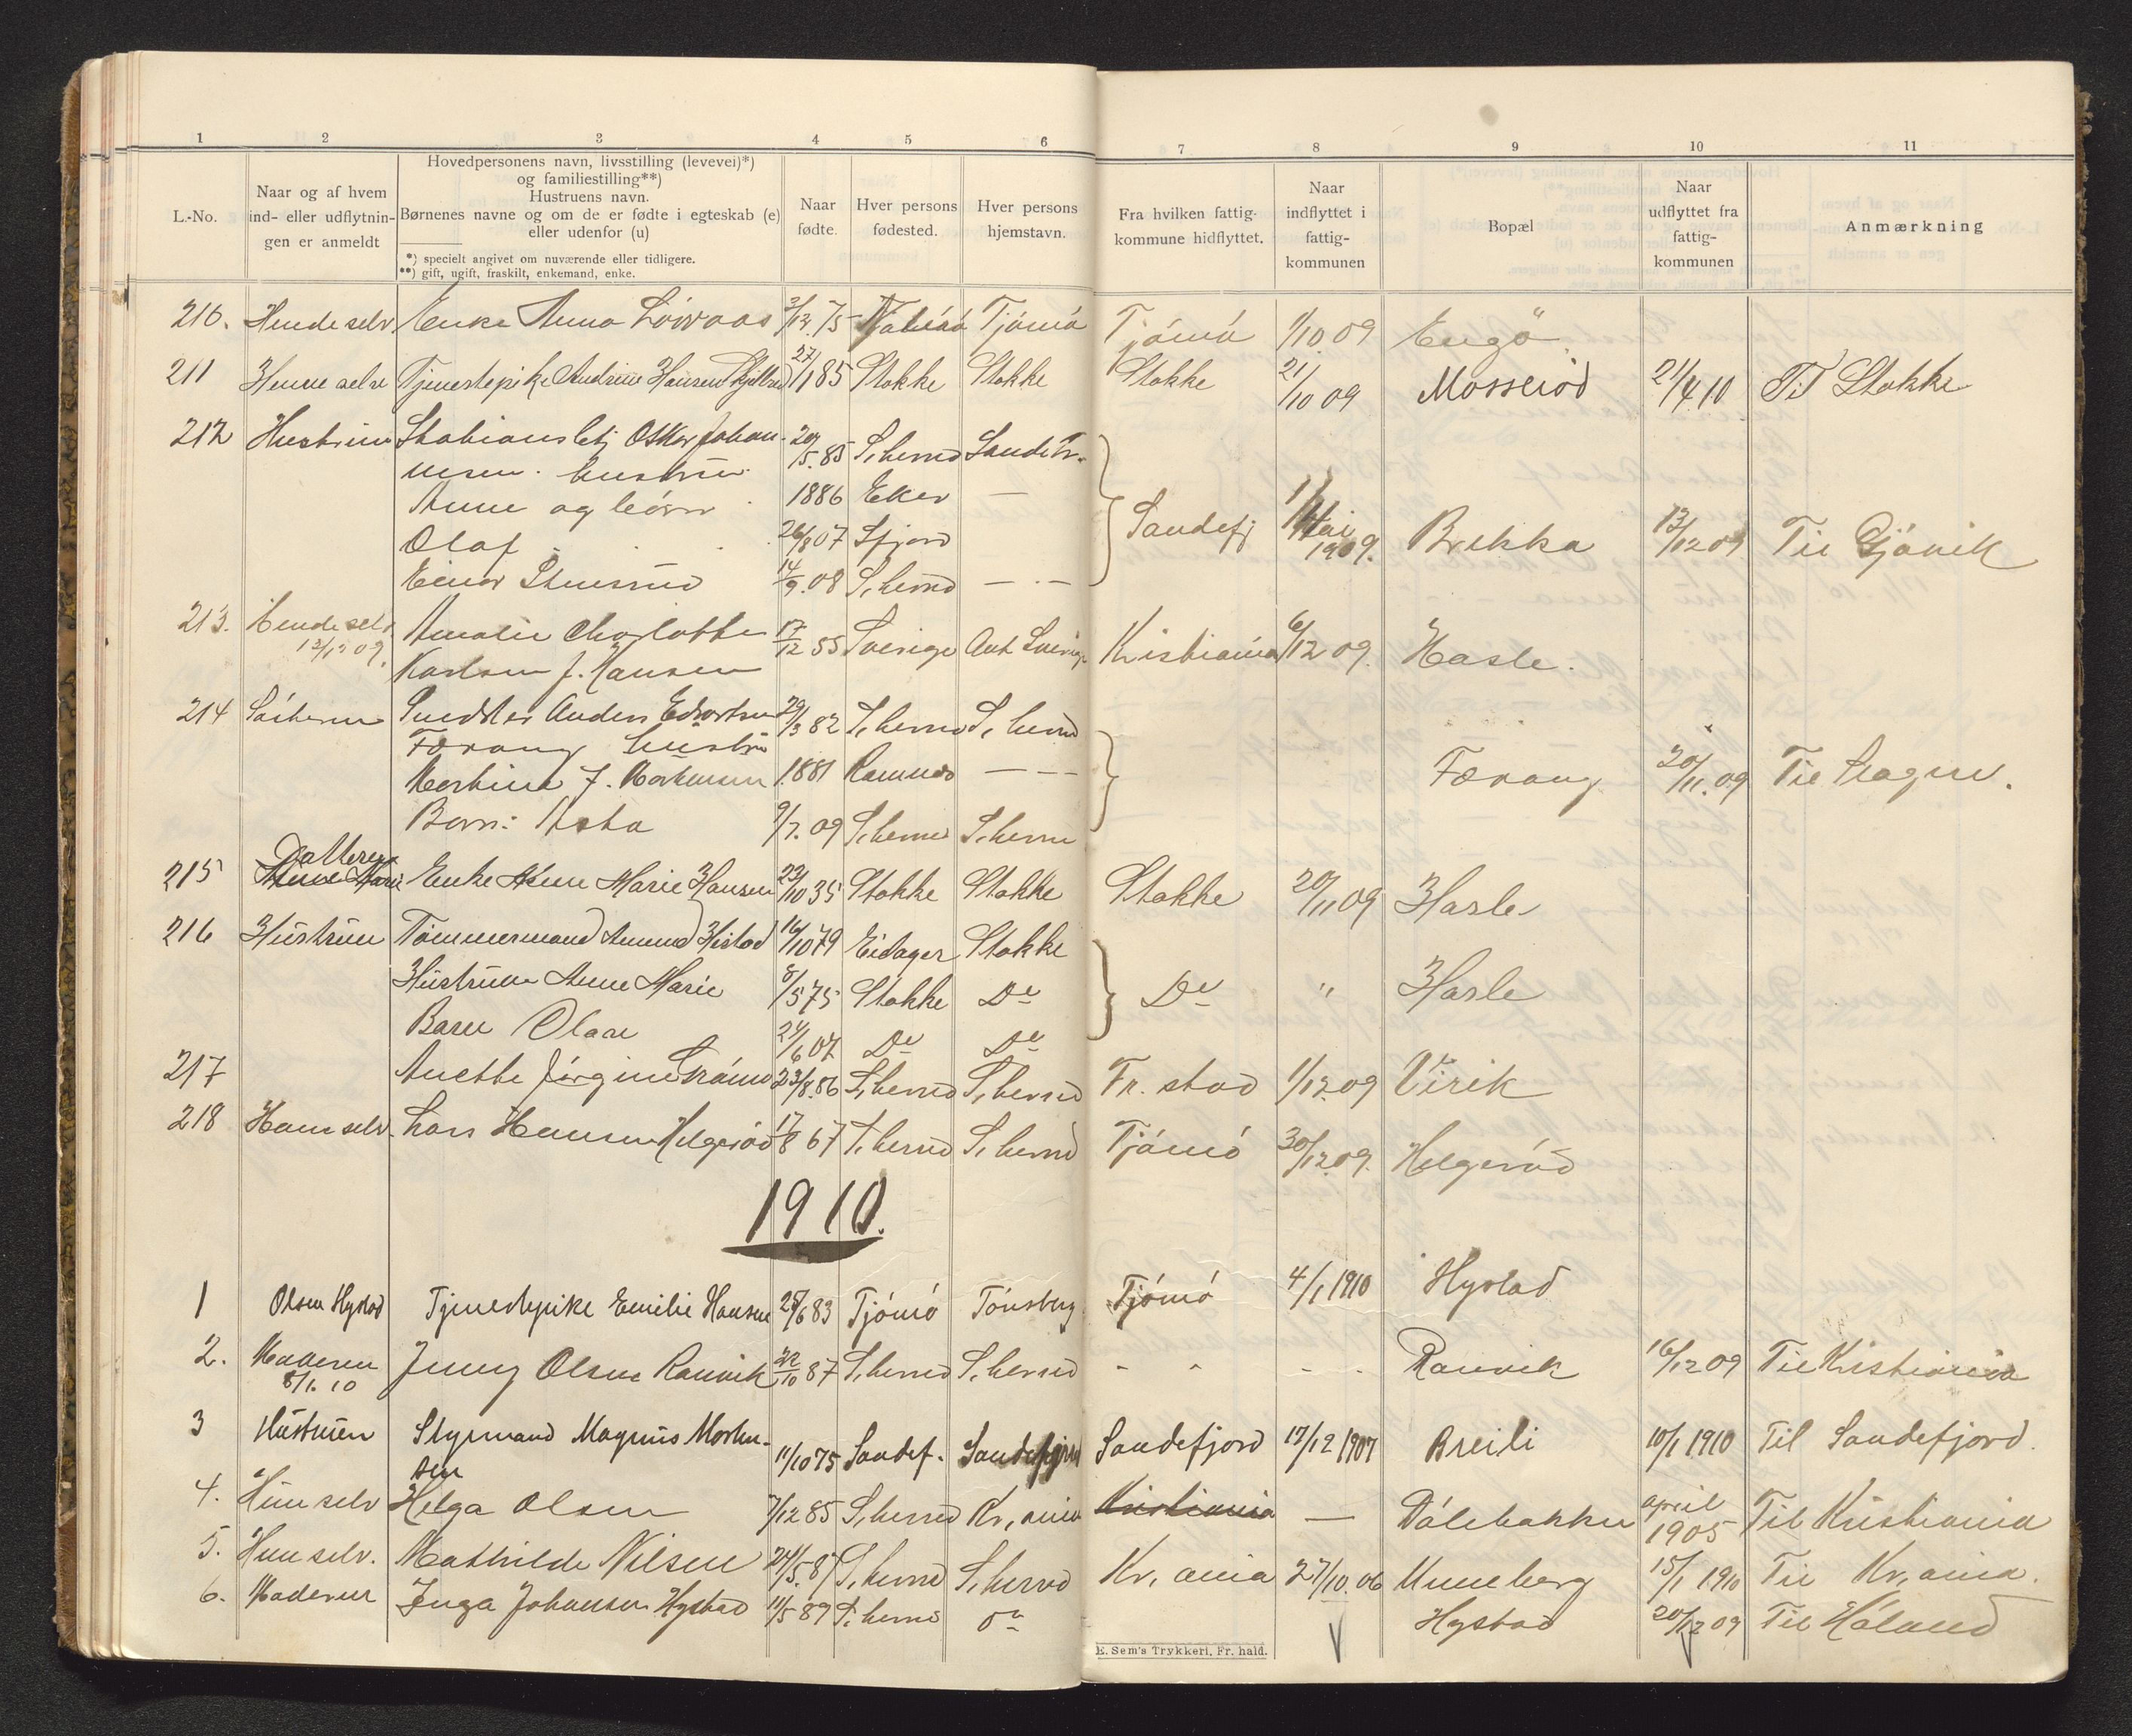 1 2 3 4 5 6 7 8 9 10 11
L.-No.
Naar og af hvem
ind- eller udflytnin-
gen er anmeldt
Hovedpersonens navn, livsstilling (levevei)*)
og familiestilling**)
Hustruens navn.
Børnenes navne og om de er fødte i egteskab (e)
eller udenfor (u)
*) specielt angivet om nuværende eller tidligere.
**) gift, ugift, fraskilt, enkemand, enke.
Naar
fødte.
Hver persons
fødested.
Hver persons
hjemstavn.
Fra hvilken fattig-
kommune hidflyttet.
Naar
indflyttet i
fattig-
kommunen
Bopæl
Naar
udflyttet fra
fattig-
kommunen
Anmærkning
210. Hende selv Enke Anna 3/12 75 Tjømø Tjømø 1/10 09 Engö
211 Henne selv Tjenestepike Andrine Hansen 27/1 85 Stokke Stokke Stokke 21/10 09 Mosserød 21/4 10 Til Stokke
212 Hustruen Oskar Johan- 20/5.85 S.herred
nesen. hustru
Anne og børn 1886 Eker — Sandefj Mai 1909. Brekka 13/12 09 Til Gjøvik
Olaf 26/8 07 Sfjord
Einar 14/9.08 S.herred — · —
213. Hende selv Amalie Charlotte 17/12 55 Sverige Ant Sverige Kristiania 6/12 09. Hasle.
13/12 09. Karlsen f. Hansen
214 Anders Edvartsen 29/3 82 S.herred S.herred
Færang hustru
f. 1881 Ramnes — — Færang 20/11.09 Til
Barn: Asta 9/7.09 S.herred S.herred
Datteren
215 Anne Marie Enke Anne Marie Hansen 23/10 35 Stokke Stokke Stokke 20/11 09 Hasle
216 Hustruen Tømmermand Amund Histad 16/10 79 Eidager Stokke
Hustruen Anne Marie 8/5 75 Stokke Do Do " Hasle
Barn Olaar 24/6 07 Do Do
217 Anette Jørgine 23/8.86 S.herred S.herred Fr. stad 1/12.09 Virik
218 Ham selv. Lars Hansen Helgerød 17/8 67 S.herred S.herred Tjømø 30/12.09. Helgerød
1910.
1 Olsen Hystad Tjenestepike Emilie Hansen 28/6 83 Tjømø Tønsberg Tjømø 4/1 1910 Hystad
2. Moderen Jenny Olsen Ranvik 22/10 87 S.herred S.herred - " - - Ranvik 16/12 09 Til Kristiania
8/1.10
3 Hustruen Styrmand Magnus Morten-
sen 11/10 75 Sandef. Sandefjord Sandefjord 17/12 1907 Breili 10/1 1910 Til Sandefjord.
4. Hun selv Helga Olsen 7/12 85 S.herred Kr.ania Kristiania — Dølebakken april 1905 Til Kristiania
5. Hun selv. Mathilde Nilsen 24/5.87 S.herred S.herred Kr.ania 27/10.06 Unneberg 15/1 1910 Til Kr.ania.
6. Moderen Inga Johansen Hystad 11/5 89 S.herred Do Hystad 20/12 09 Til Høland
E. Sem's Trykkeri, Fr. hald.